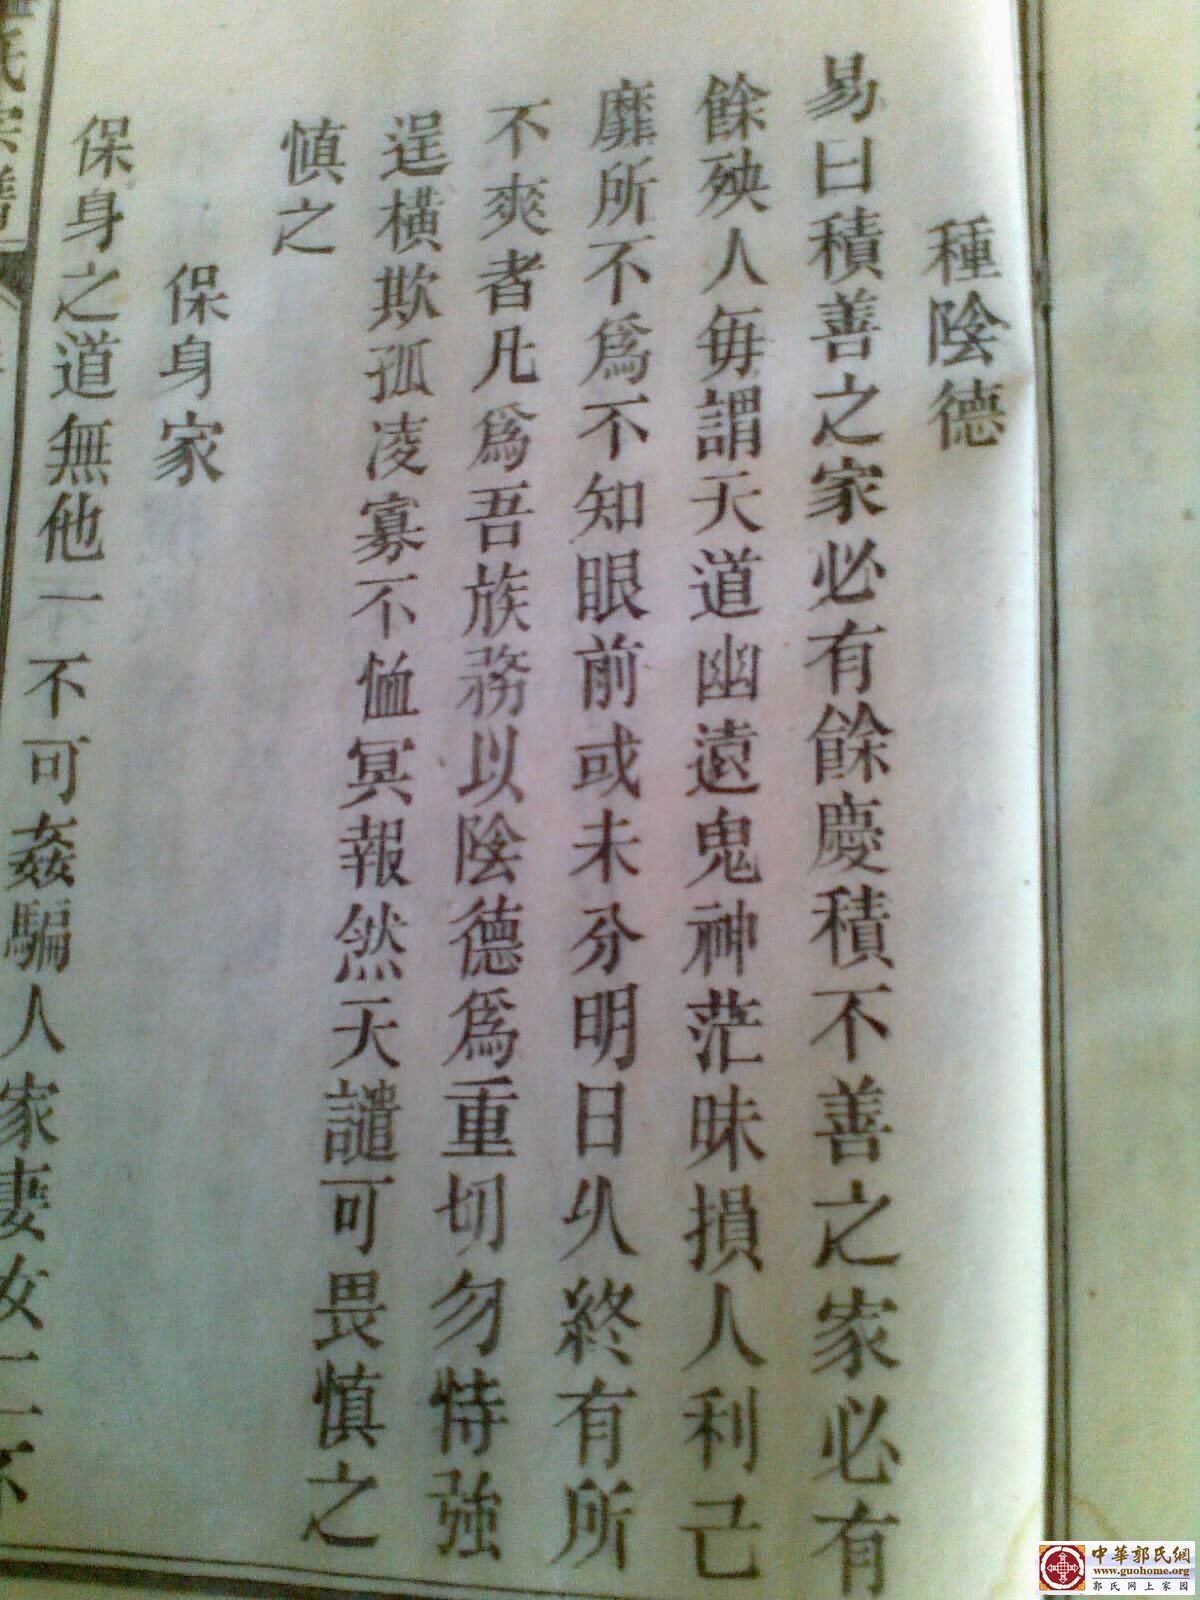 種陰德
易曰積善之家必有餘慶積不善之家必有
餘殃人毎謂天道幽遠鬼神茫昧損人利己
靡所不爲不知眼前或未分明日乆終有所
不爽者凡爲吾族務以陰德爲重切勿恃強
逞橫欺孤凌寡不恤冥報然天譴可畏慎之
慎之
保身家
保身之道無他一不可姦騙人家妻女一不
氏宗譜
中華郭氏網
www.guohome.org
郭氏网上家园